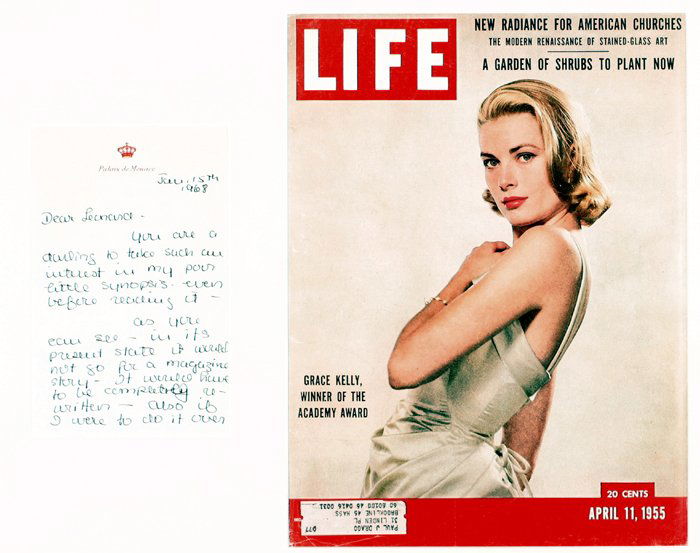 Palais de Monaco
Jan. 15th
1968
Dear Leonard -
You are a
darling to take such an
interest in my poor
little synopsis - even
before reading it -
as you
can see - in its
present state it would
not go for a magazine
story - It would have
to be completely re-
written - Also if
I were to do it over
LIFE
NEW RADIANCE FOR AMERICAN CHURCHES
THE MODERN RENAISSANCE OF STAINED-GLASS ART
A GARDEN OF SHRUBS TO PLANT NOW
GRACE KELLY,
WINNER OF THE
ACADEMY AWARD
20 CENTS
APRIL 11, 1955
PAUL J DRAGO
31 LINDEN PL
BROOKLINE 46 MASS